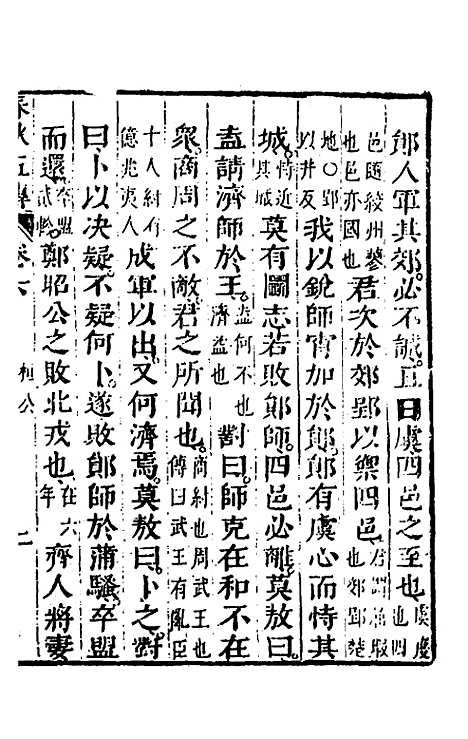 鄖人軍其郊必不誡且日虞四邑之至也虞度也四
邑隨絞州蓼也邑亦國也君次於郊郢以禦四邑君謂屈瑕也郊郢楚
地○郢以井反我以銳師宵加於鄖鄖有虞心而恃其
城恃近其城莫有鬬志若敗鄖師四邑必離莫敖曰
盍請濟師於王盍何不也濟益也對曰師克在和不在
衆商周之不敵君之所聞也商紂也周武王也傳曰武王有亂臣
十人紂有億兆夷人成軍以出又何濟焉莫敖曰卜之對
曰卜以決疑不疑何卜遂敗鄖師於蒲騷卒盟
而還卒盟貳軫鄭昭公之敗北戎也在六年齊人將妻
春秋左傳 卷六 桓公 二